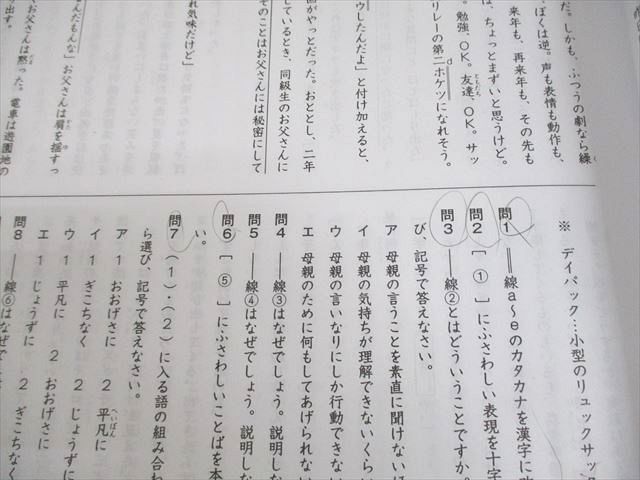 だ。しかも、ふつうの劇なら練
ぼくは逆。声も表情も動作も、
来年も、再来年も、その先も
は、ちょっとまずいと思うけど。
勉強、OK。友達、OK。サッ
リレーの第二ホケツになれそう。
ウしたんだよ」と付け加えると、
がやっとだった。おととし、二年
しているとき、同級生のお父さんに
そのことはお父さんには秘密にして
れ気味だけど」
んだもんな」お父さんは肩を揺すっ
お父さんは黙った。電車は遊園地の
出す。
※ デイパック…小型のリュックサック
問1 ――線a～eのカタカナを漢字に
問2 [ ① ]にふさわしい表現を十字
問3 ――線②とはどういうことですか。
び、記号で答えなさい。
ア 母親の言うことを素直に聞けない
イ 母親の気持ちが理解できないくらい
ウ 母親の言いなりにしか行動できない
エ 母親のために何もしてあげられない
問4 ――線③はなぜでしょう。説明しな
問5 ――線④はなぜでしょう。説明しな
問6 [ ⑤ ]にふさわしいことばを本
い。
問7 (1)・(2)に入る語の組み合わ
ら選び、記号で答えなさい。
ア 1 おおげさに 2 平凡に
イ 1 ぎこちなく 2 じょうずに
ウ 1 平凡に 2 おおげさに
エ 1 じょうずに 2 ぎこちなく
問8 ――線⑥はなぜで